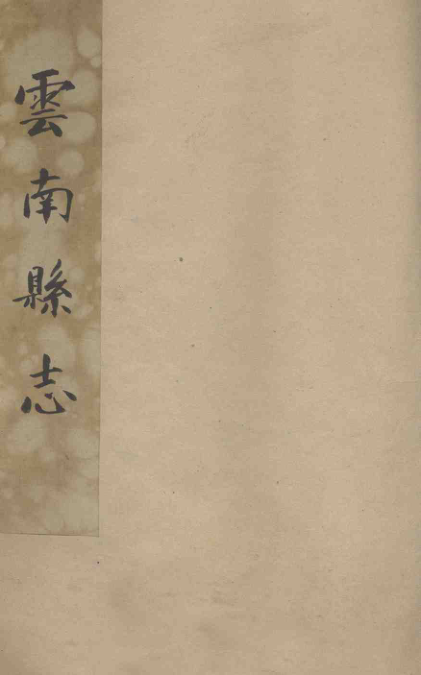 雲南縣志